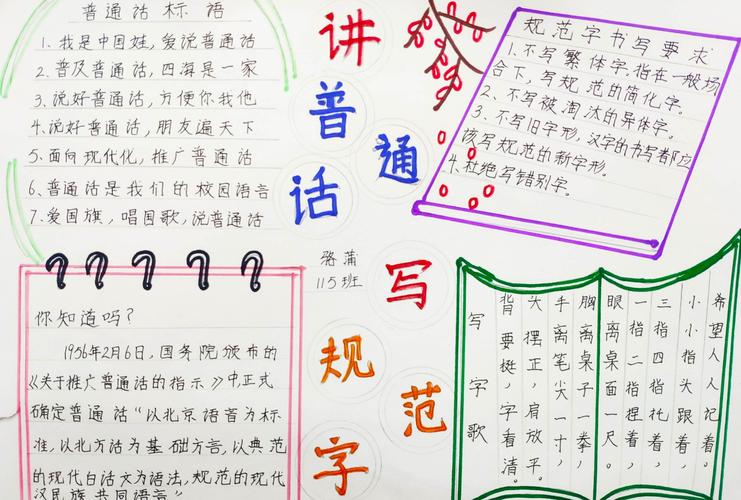 普通话标语
1.我是中国娃,爱说普通话
2.普及普通话,四海是一家
3.说好普通话,方便你我他
4.说好普通话,朋友遍天下
5.面向现代化,推广普通话
6.普通话是我们的校园语言
7.爱国旗,唱国歌,说普通话
讲
普
通
话
写
规
范
字
骆蒲
115班
规范字书写要求
1.不写繁体字.指在一般场
合下,写规范的简化字。
2、不写被淘汰的异体字。
3、不写旧字形,汉字的书写都应
该写规范的新字形。
4.杜绝写错别字。
你知道吗?
1956年2月6日,国务院颁布的
《关于推广普通话的指示》中,正式
确定普通话“以北京语音为标
准,以北方话为基础方言,以典范
的现代白话文为语法,规范的现代
汉民族共同语言”
写字歌
背要挺,字看清。
头摆正,肩放平。
手离笔尖一寸,
胸离桌子一拳,
眼离桌面一尺。
一指二指捏着,
三指四指托着,
小小指头跟着,
希望人人记着。